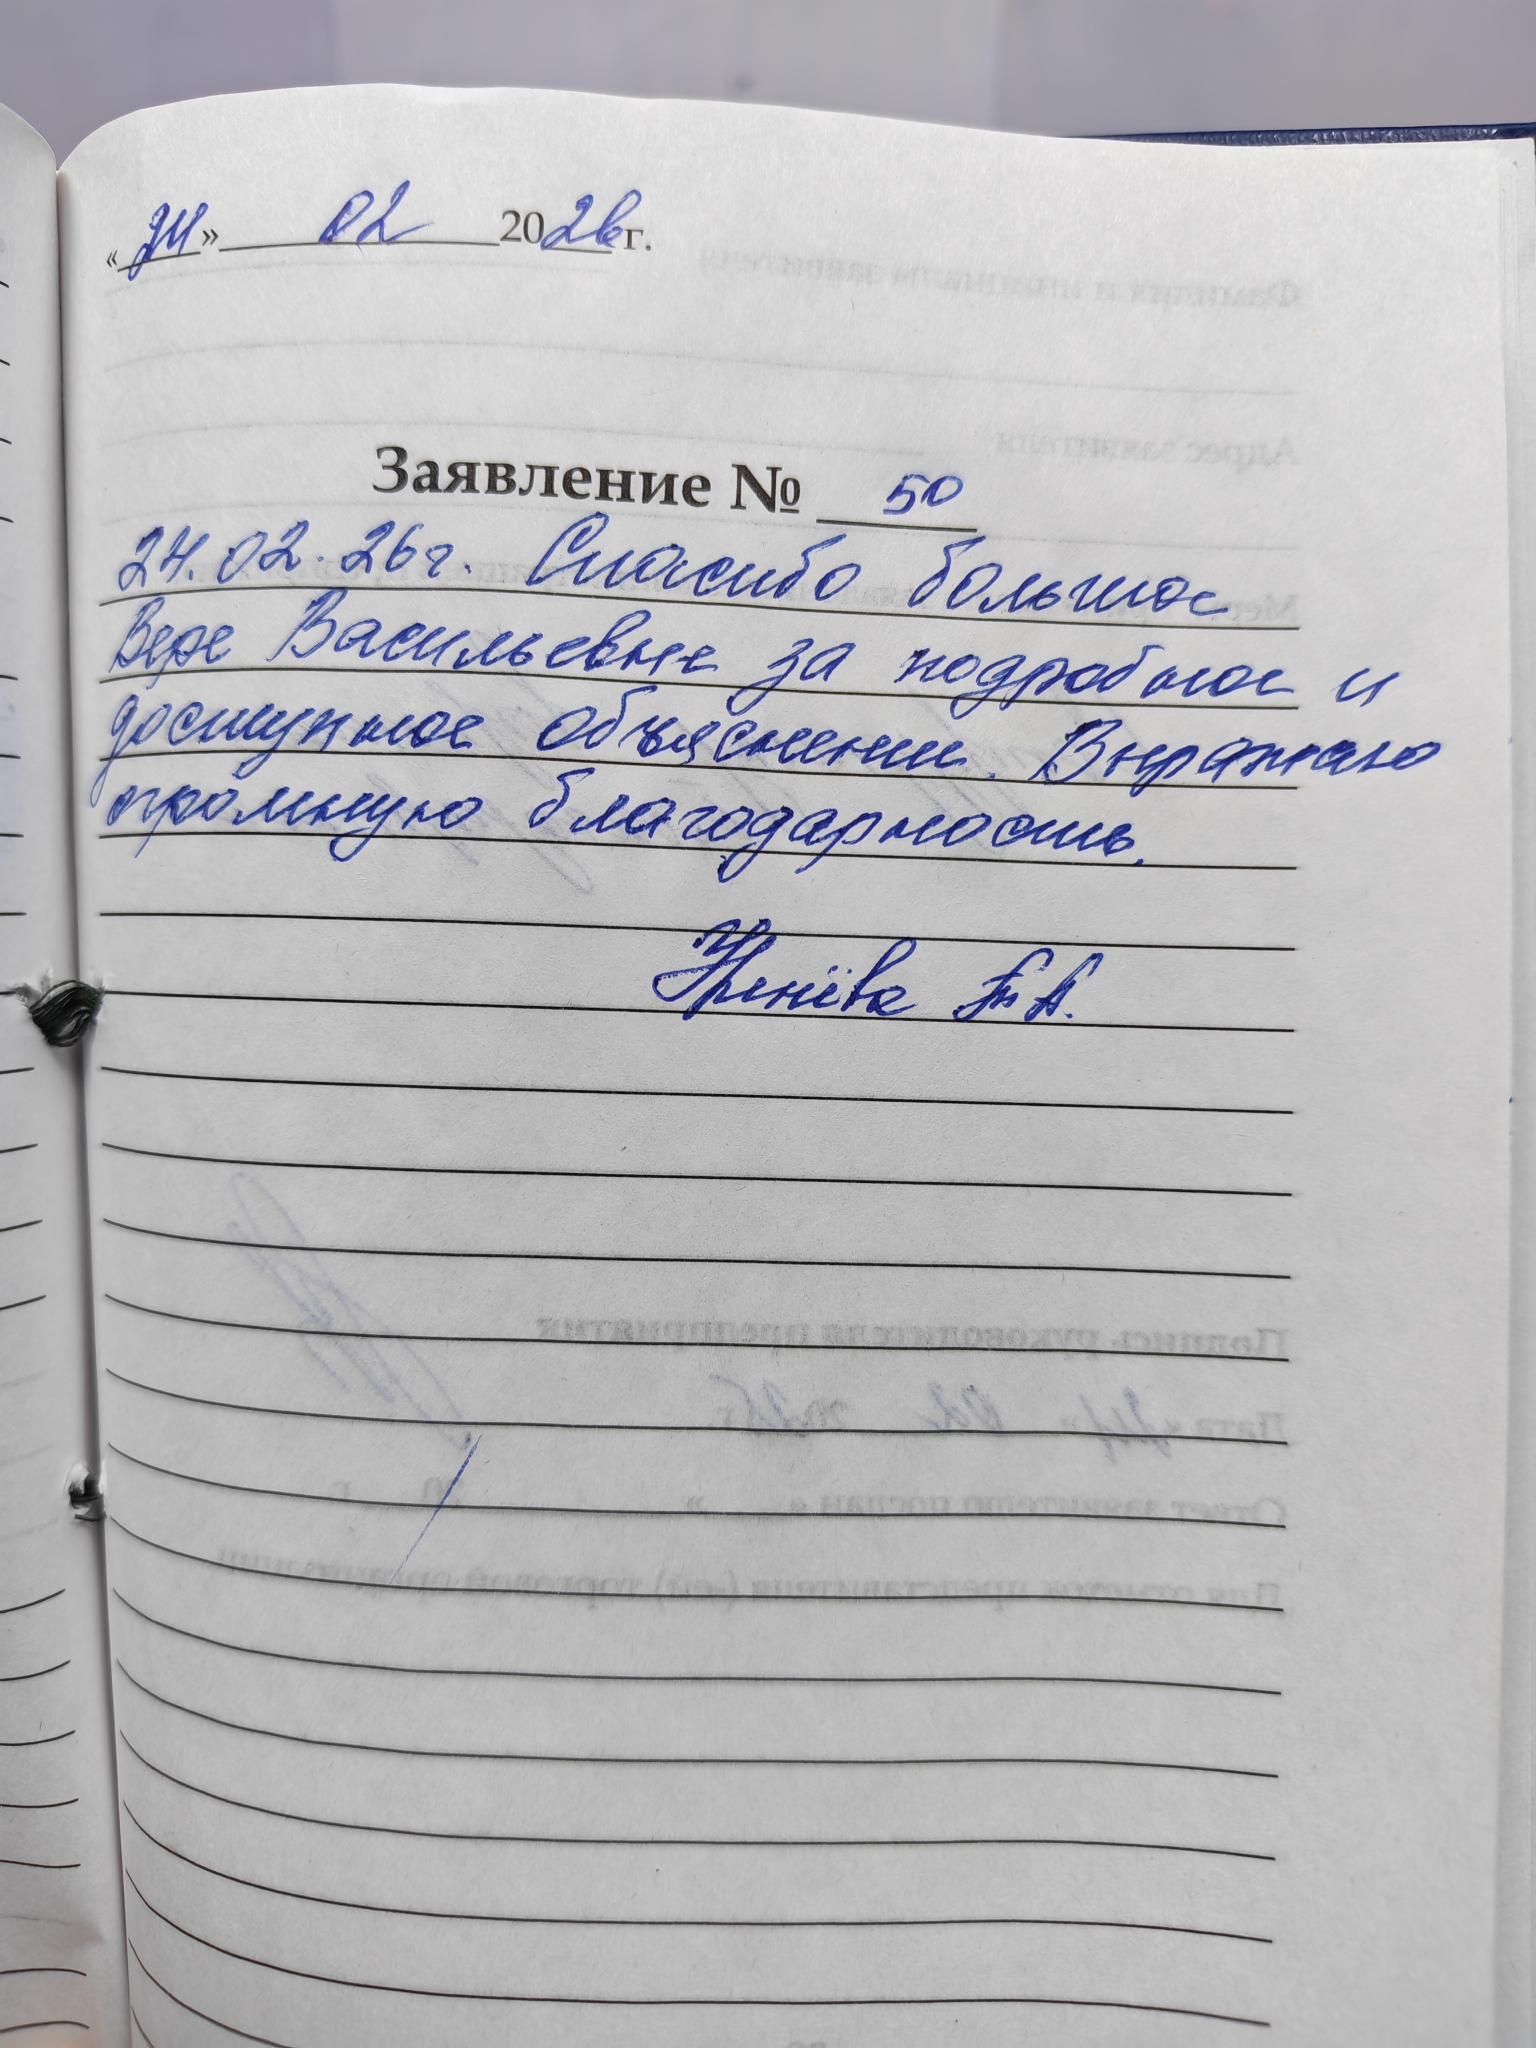 «24» 02 2026 г.
Заявление № 50
24.02.26г. Спасибо большое
Вере Васильевне за подробное и
доступное объяснение. Выражаю
огромную благодарность.
А.